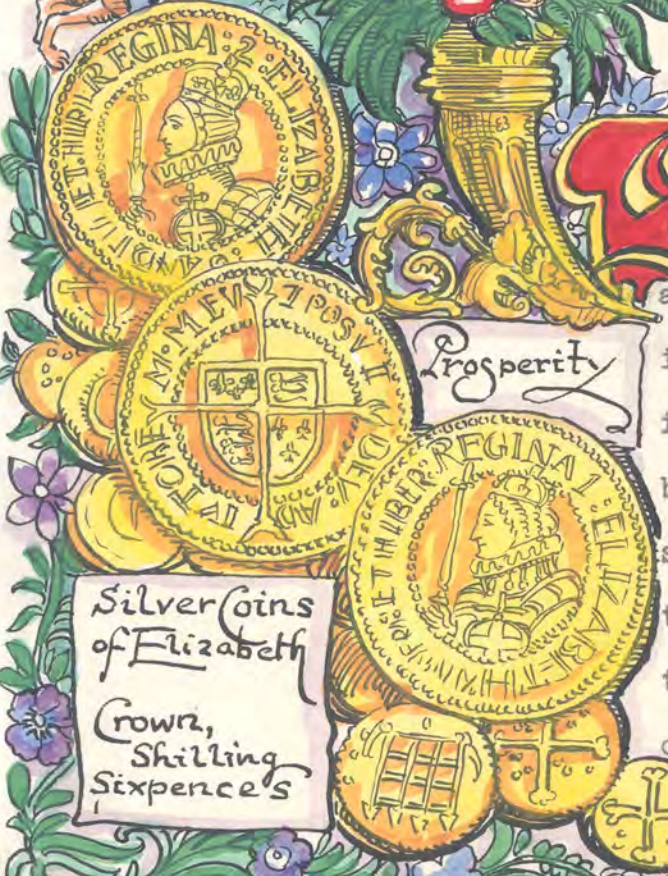 REGINA · 2 · ELIZABETH
POSVI
DEV · AD
IVTORE M · MEV
Prosperity
REGINA 1 · ELIZABETH
Silver Coins
of Elizabeth
Crown,
Shilling
Sixpence's